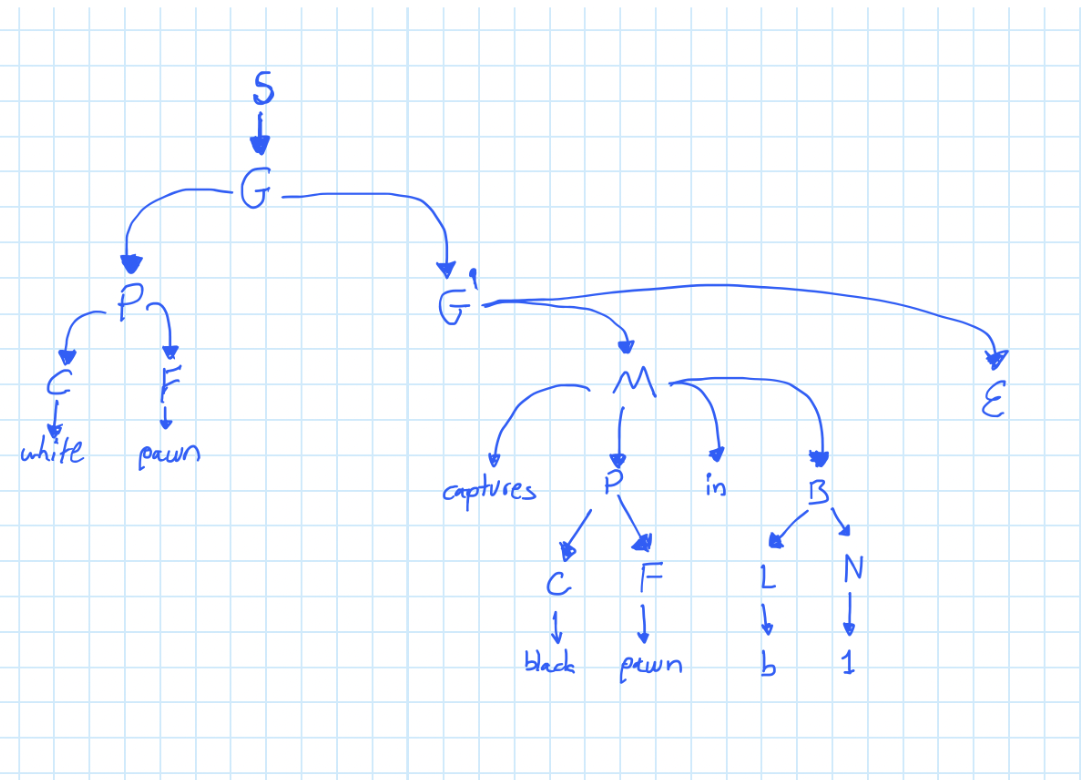 S
G
P G'
C F M ε
white pawn captures P in B
C F L N
black pawn b 1